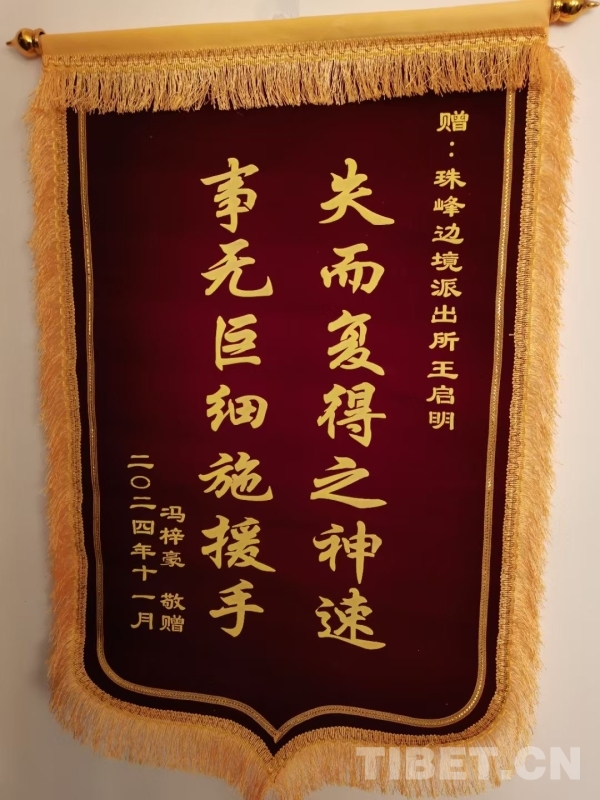 赠：珠峰边境派出所王启明
失而复得之神速
事无巨细施援手
冯梓豪 敬赠
二〇二四年十一月
TIBET.CN